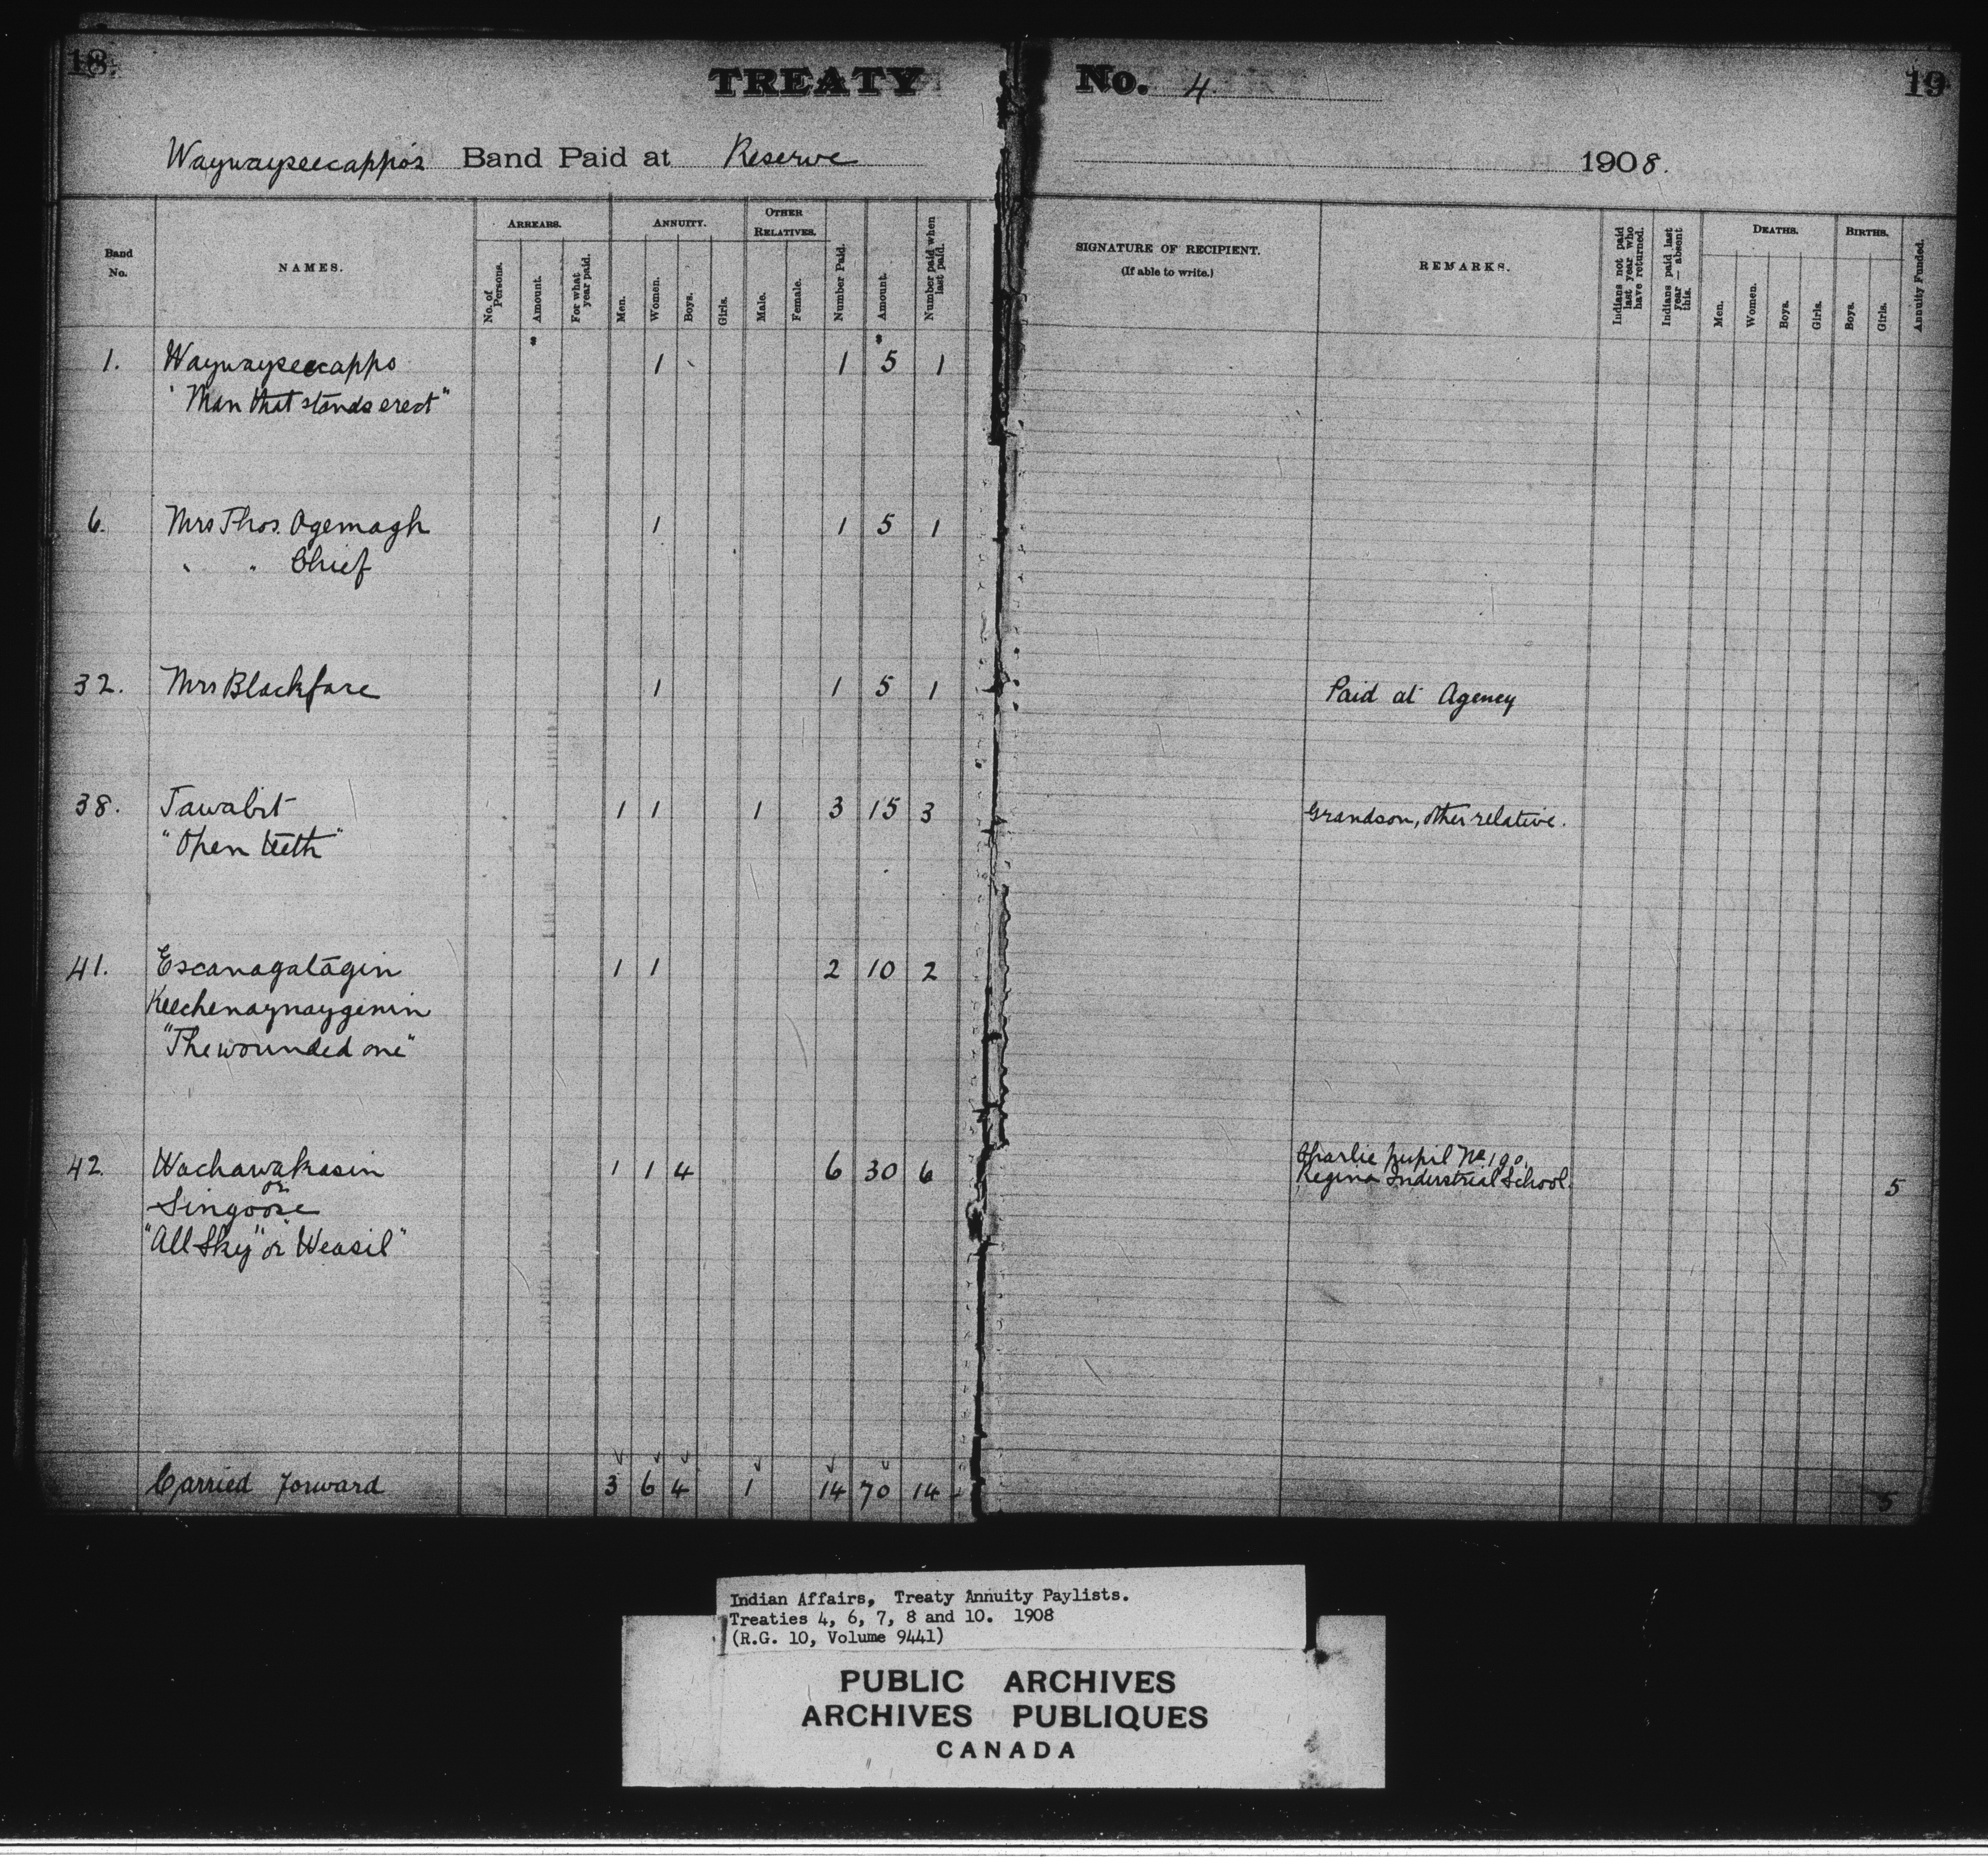 18.
TREATY No. 4.
19
Waywayseecappo's Band Paid at Reserve 1908.
Band No.
NAMES.
ARREARS.
No. of Persons.
Amount.
For what year paid.
ANNUITY.
Men.
Women.
Boys.
Girls.
OTHER RELATIVES.
Male.
Female.
Number Paid.
Amount.
Number paid when last paid.
SIGNATURE OF RECIPIENT.
(If able to write.)
REMARKS.
Indians not paid last year who have returned.
Indians paid last year — absent this.
DEATHS.
Men.
Women.
Boys.
Girls.
BIRTHS.
Boys.
Girls.
Annuity Funded.
$ $
1. Waywayseecappo 1 1 5 1
"Man that stands erect"
6. Mrs Thos. Ogemagh 1 1 5 1
" " Chief
32. Mrs Blackface 1 1 5 1 Paid at Agency
38. Tawabit 1 1 1 3 15 3 Grandson, other relative.
"Open teeth"
41. Escanagatagin 1 1 2 10 2
Keechenaynaygenin
"The wounded one"
42. Wachawakasin 1 1 4 6 30 6 Charlie pupil No 190.
or Regina Industrial School. 5
Singoose
"All Sky" or "Weasil"
Carried forward 3 6 4 1 14 70 14 5
Indian Affairs, Treaty Annuity Paylists.
Treaties 4, 6, 7, 8 and 10. 1908
(R.G. 10, Volume 9441)
PUBLIC ARCHIVES
ARCHIVES PUBLIQUES
CANADA